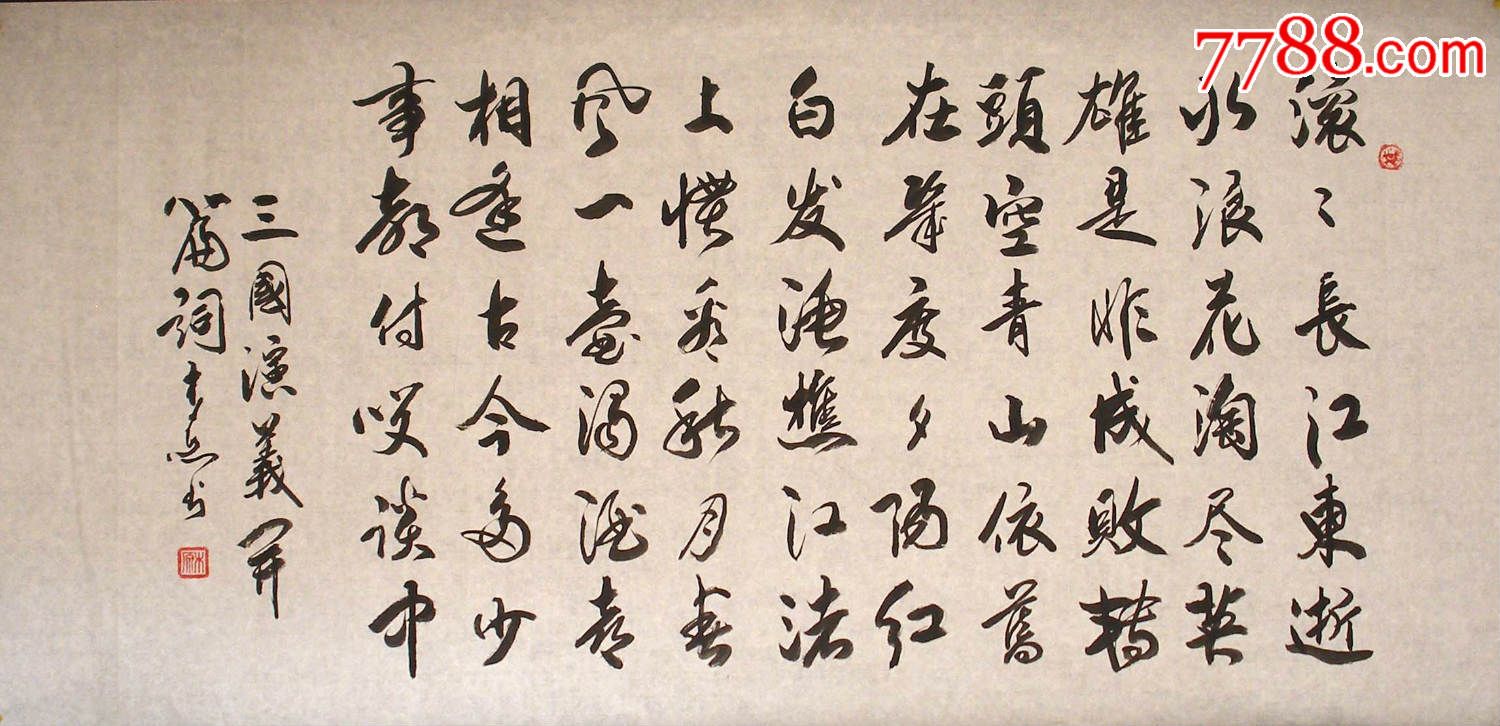 滚〻長江東逝
水浪花淘尽英
雄是非成敗轉
頭空青山依舊
在幾度夕陽紅
白发漁樵江渚
上慣看秋月春
风一壺濁酒喜
相逢古今多少
事都付笑談中
三國演義開
篇詞
书
7788.com